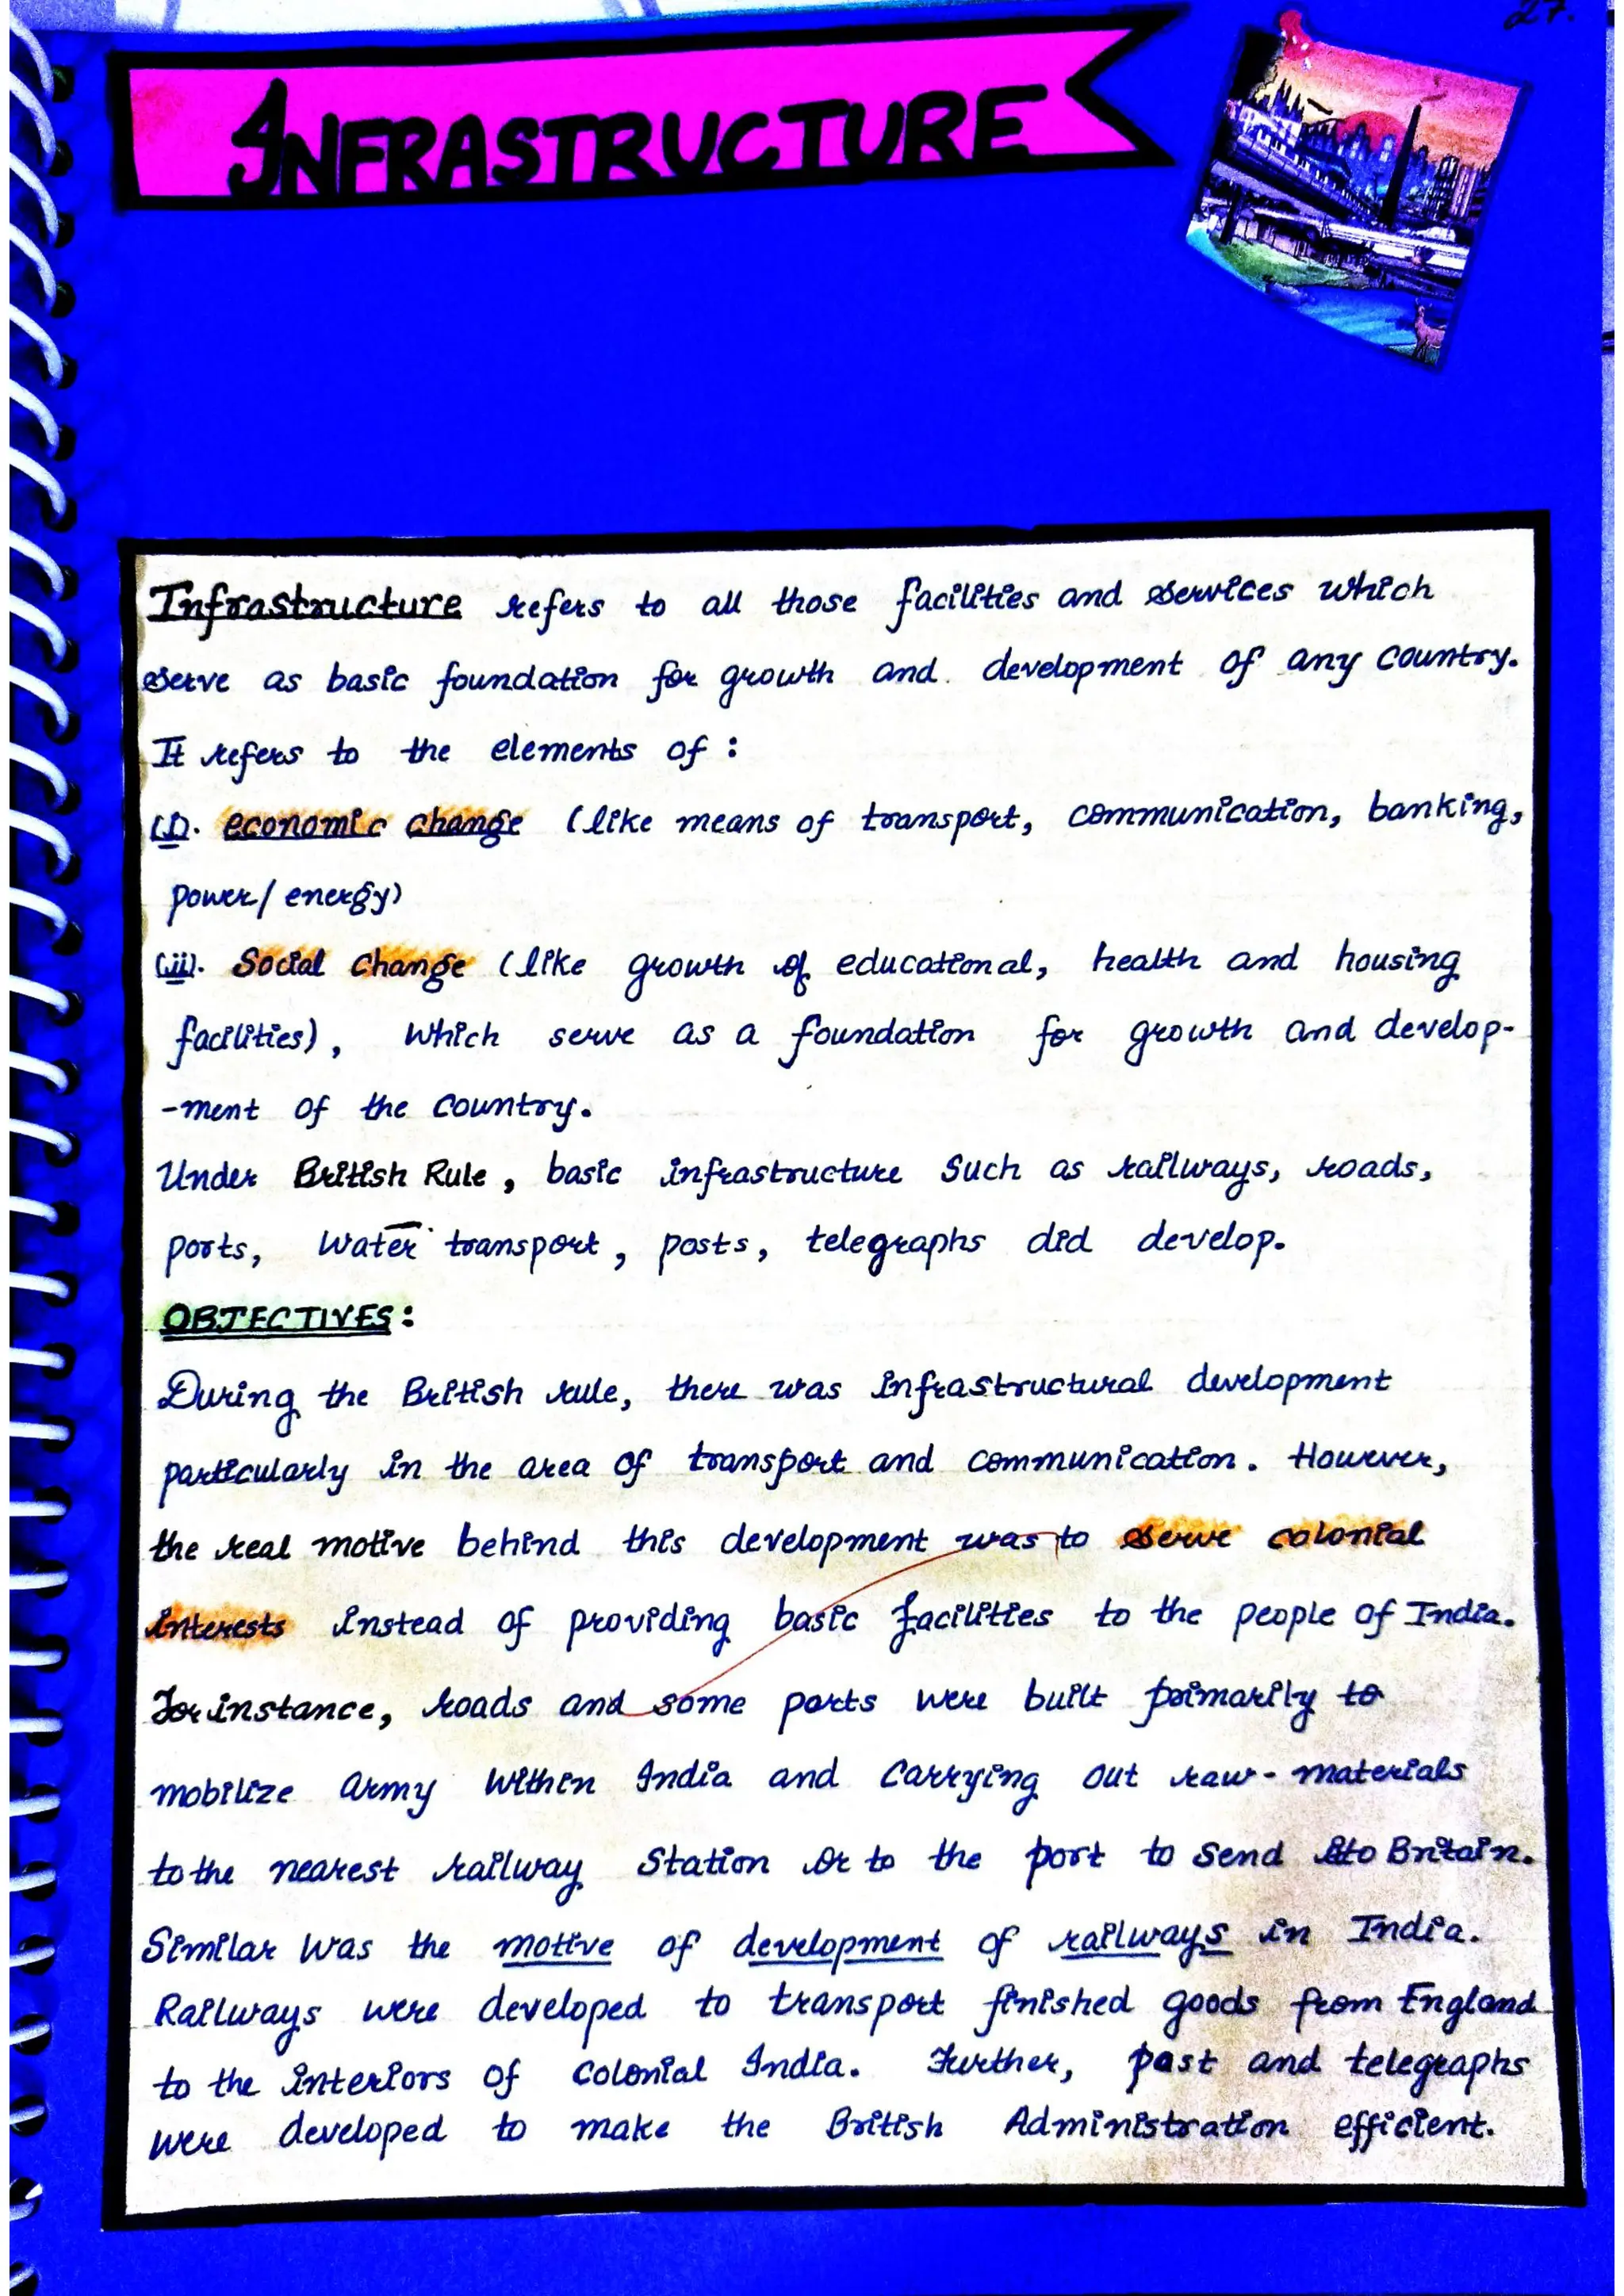 27.
INFRASTRUCTURE
Infrastructure refers to all those facilities and services which
serve as basic foundation for growth and development of any country.
It refers to the elements of :
(i). economic change (like means of transport, communication, banking,
power/energy)
(ii). Social change (like growth of educational, health and housing
facilities), which serve as a foundation for growth and develop-
-ment of the country.
Under British Rule, basic infrastructure such as railways, roads,
ports, water transport, posts, telegraphs did develop.
OBJECTIVES:
During the British rule, there was infrastructural development
particularly in the area of transport and communication. However,
the real motive behind this development was to serve colonial
interests instead of providing basic facilities to the people of India.
For instance, roads and some ports were built primarily to
mobilize army within India and carrying out raw-materials
to the nearest railway station or to the port to send to Britain.
Similar was the motive of development of railways in India.
Railways were developed to transport finished goods from England
to the interiors of colonial India. Further, post and telegraphs
were developed to make the British Administration efficient.